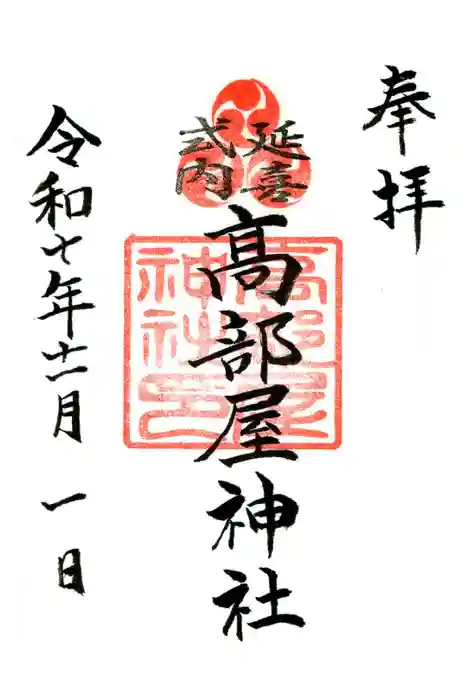 奉拝
延喜
式内
髙部屋神社
髙部屋
神社印
令和七年十一月一日